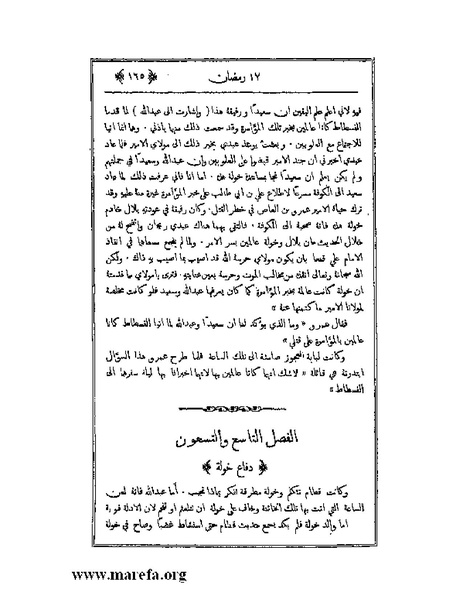 ١٧ رمضان ﴿ ١٦٥ ﴾
فهو لاني اعلم علم اليقين ان سعيدًا ورفيقه هذا ( واشارت الى عبدالله ) لما قدما
الفسطاط كانا عالمين بخبر تلك المؤامرة وقد سمعت ذلك منها باذني . وهما انما اتيا
للاجتماع مع العلويين . وبعثت عبدي بخبر ذلك الى مولاي الامير فلما عاد
عبدي اخبرني ان جند الامير قبضوا على العلويين وان عبدالله وسعيدًا في جملتهم
ولم يكن يعلم ان سعيدًا نجا بمساعدة خولة هذه . اما انا فاني عرفت ذلك لما عاد
سعيد الى الكوفة مسرعًا لاطلاع علي بن ابي طالب على خبر المؤامرة غيرة منه عليه وقد
ترك حياة الامير عمرو بن العاص في خطر القتل . وكان رفيقه في عودته بلال خادم
خولة هذه فانه صحبه الى الكوفة . فالتقى بهما هناك عبدي ريحان واتضح له من
خلال الحديث مان بلال وخولة عالمين بسر الامر . ولما لم ينجح سعيهما في انقاذ
الامام علي فرحا بان يكون مولاي حرسه الله قد اصيب بما اصيب به ذاك . ولكن
الله سبحانه وتعالى انقذك من مخالب الموت وحرسه بعين عنايته . فترى يا مولاي مما قدمته
ان خولة كانت عالمة بخبر المؤامرة كما كان يعرفها عبدالله وسعيد فلو كانت مخلصة
لمولانا الامير ما كتمتها عنه »
فقال عمرو « وما الذي يؤكد لنا ان سعيدًا وعبدالله لما اتيا الفسطاط كانا
عالمين بالمؤامرة على قتلي »
وكانت لبابة العجوز صامتة الى تلك الساعة فلما طرح عمرو هذا السؤال
ابتدرته هي قائلة « لا شك انهما كانا عالمين بها لانهما اخبرانا بها ليلة سفرهما الى
الفسطاط »
الفصل التاسع والتسعون
﴿ دفاع خولة ﴾
وكانت قطام تتكلم وخولة مطرقة تفكر بماذا تجيب . أما عبدالله فانه لعن
الساعة التي اتت بها تلك الخائنة وخاف على خولة ان تتلعثم او تفحم لان الادلة قوية
اما والد خولة فلم يكد يسمع حديث قطام حتى استشاط غضبًا وصاح في خولة
www.marefa.org